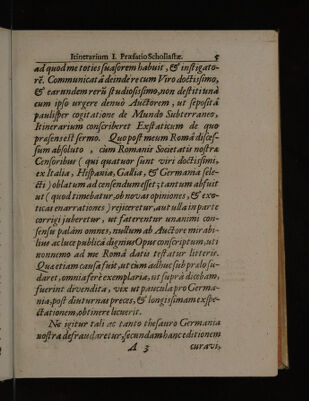 Itinerarium I. Præfatio Scholiastæ. 5
ad quod me toties suasorem habuit, & instigato-
rē. Communicatâ deinde re cum Viro doctissimo,
& earundem rerū studiosissimo, non destiti unà
cum ipso urgere denuò Auctorem, ut sepositâ
paulisper cogitatione de Mundo Subterraneo,
Itinerarium conscriberet Exstaticum de quo
præsens est sermo. Quo post meum Româ disces-
sum absoluto, cùm Romanis Societatis nostræ
Censoribus (qui quatuor sunt viri doctissimi,
ex Italia, Hispania, Gallia, & Germania sele-
cti) oblatum ad censendum esset; tantum abfuit
ut (quod timebatur, ob novas opiniones, & exo-
ticas enarrationes) rejiceretur, aut ulla in parte
corrigi juberetur, ut faterentur unanimi con-
sensu palàm omnes, nullum ab Auctore mirabi-
lius ac luce publicâ dignius Opus conscriptum, uti
nonnemo ad me Româ datis testatur litteris.
Qua etiam causa fuit, ut cùm adhuc sub prælo su-
daret, omnia ferè exemplaria, ut suprà dicebam,
fuerint divendita, vix ut paucula pro Germa-
nia, post diuturnas preces, & longissimam exspe-
ctationem, obtinere licuerit.
Ne igitur tali ac tanto thesauro Germania
nostra defraudaretur, secundam hanc editionem
A 3 curavi,